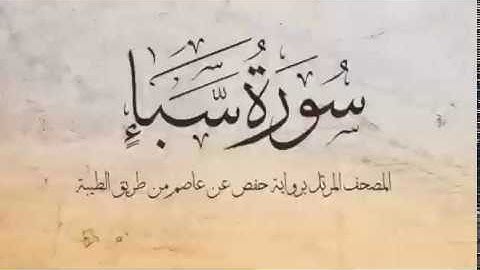 سُورَةُ سَبَإٍ
المصحف المرتل برواية حفص عن عاصم من طريق الطيبة